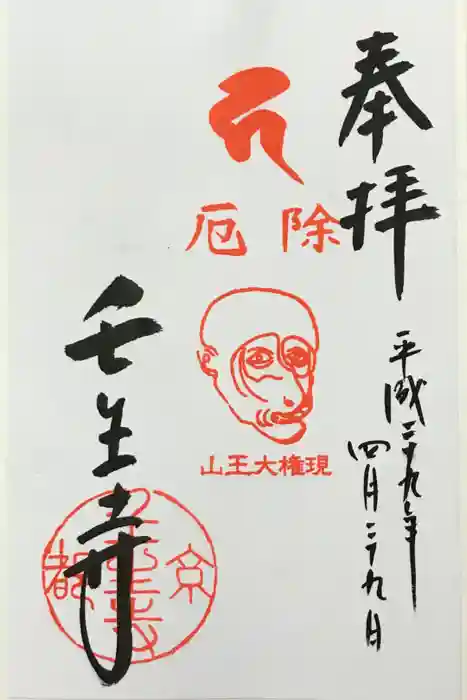 奉拝
平成二十九年
四月二十九日
厄除
山王大権現
壬生寺
京都